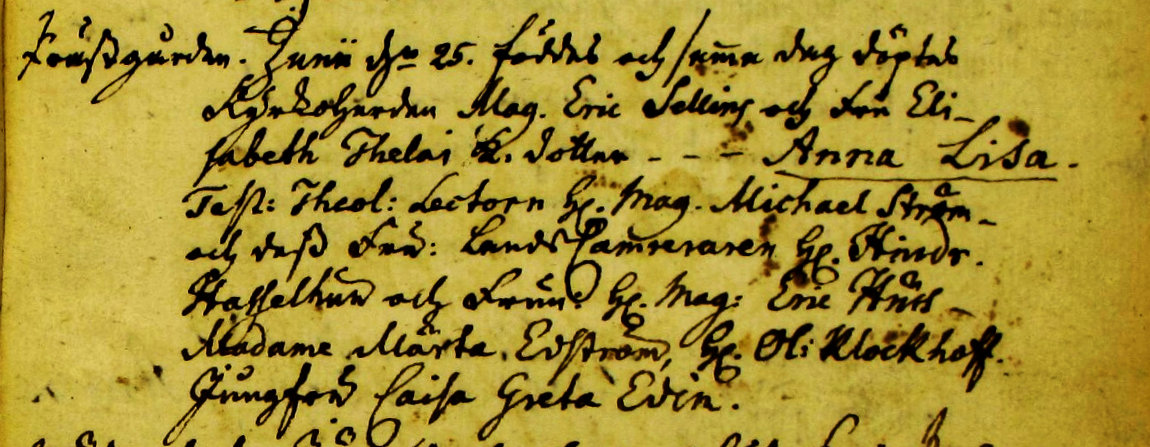 Prustgården. Junii den 25. föddes och samma dag döptes
Kyrkoherden Mag. Eric Sellins och Fru Eli-
sabeth Thelai dotter - - - Anna Lisa.
Test: Theol: Lectorn H. Mag. Michael Ström-
och dess Fru: Lands Camreraren H. Hindr.
Hasselhun och Frun: H. Mag: Eric Hüss-
Madame Märta Edström, H. Ol: Klockhoff.
Jungfru Caisa Greta Edin.